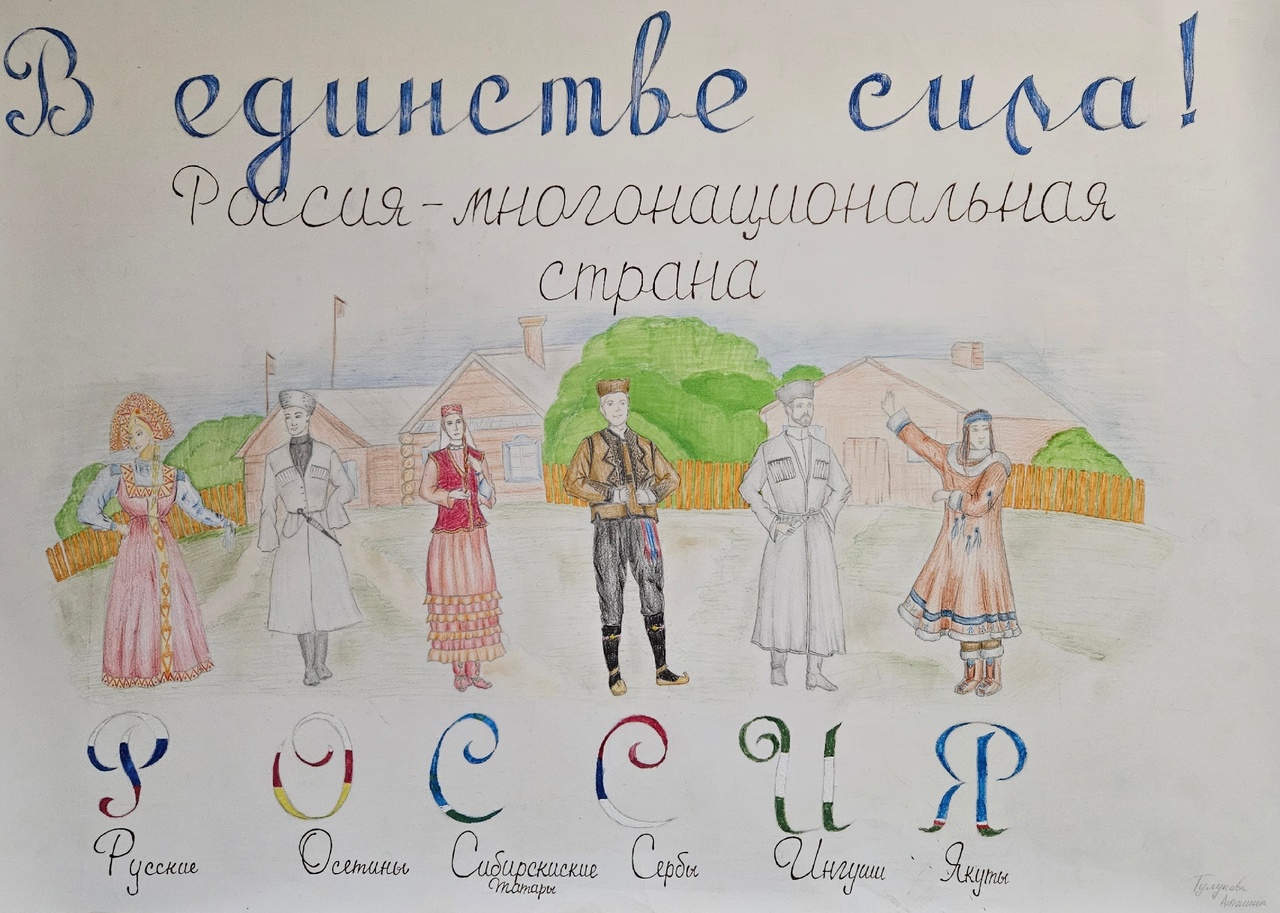 В единстве сила!
Россия - многонациональная
страна
Р О С С И Я
Русские Осетины Сибирскиские Сербы Ингуши Якуты
татары